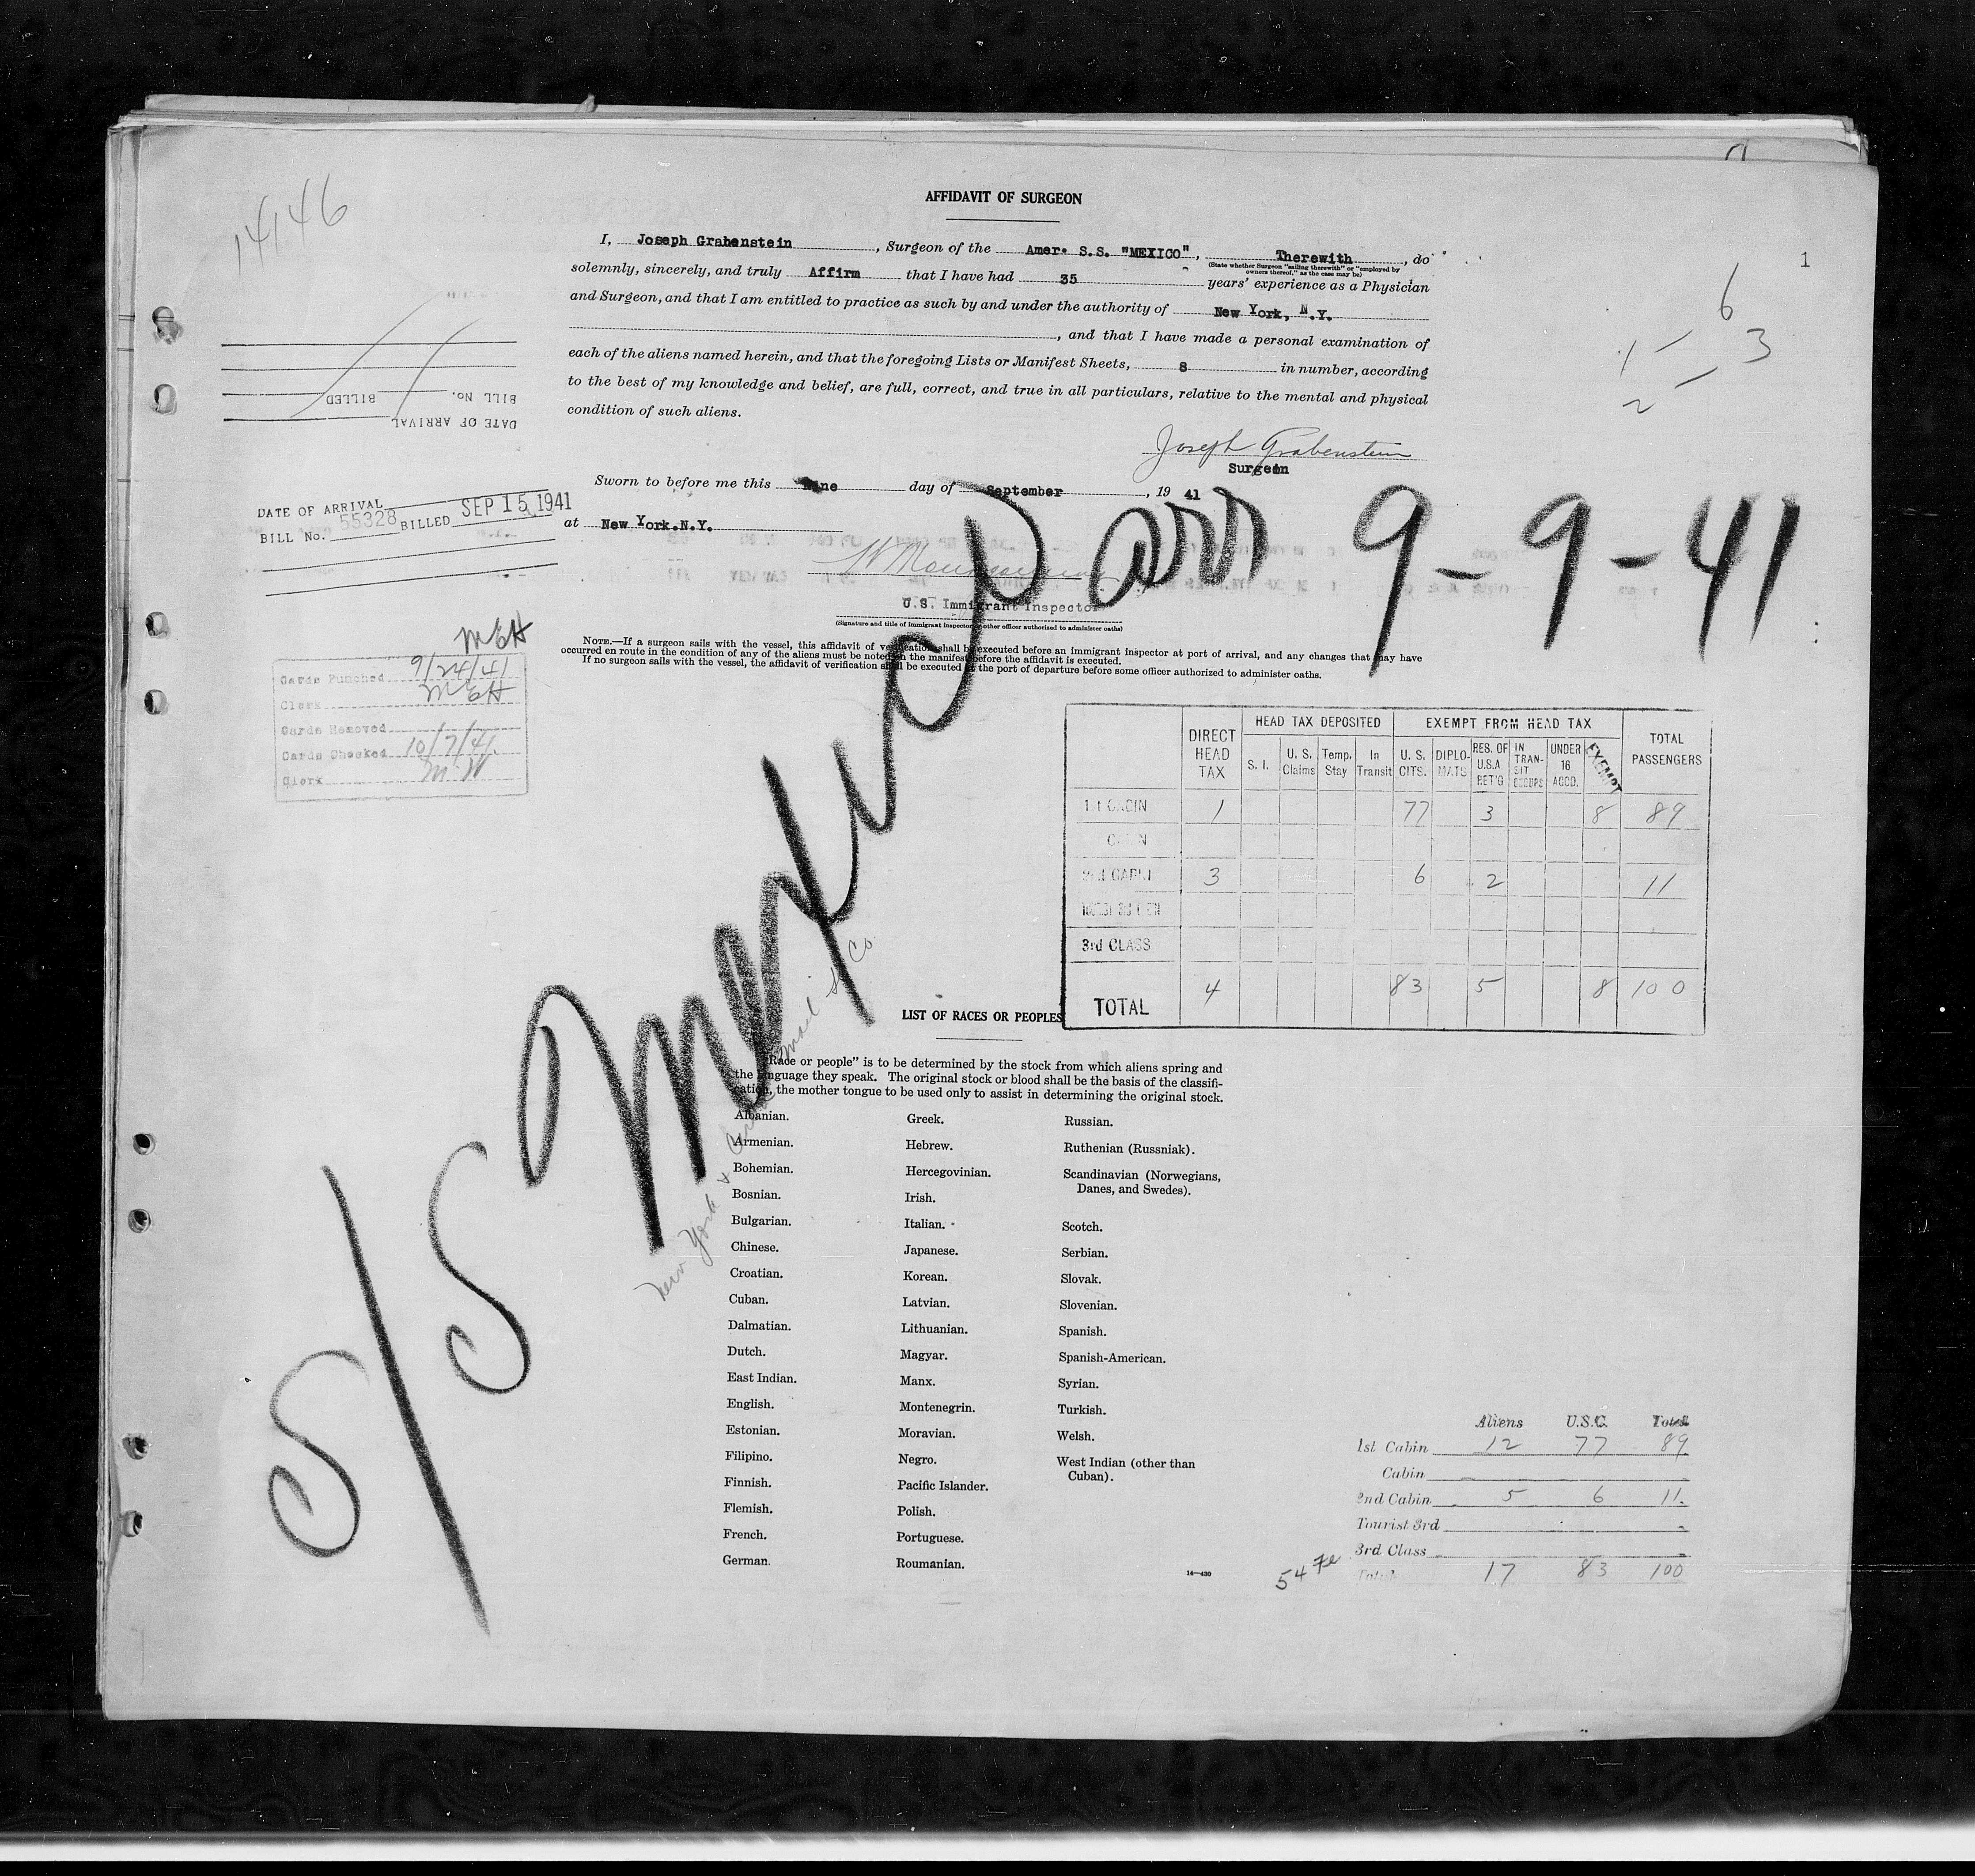 14146
AFFIDAVIT OF SURGEON
1
I, Joseph Grabenstein, Surgeon of the Amer. S.S. "MEXICO", Therewith, do
(State whether Surgeon "sailing therewith" or "employed by owners thereof," as the case may be)
solemnly, sincerely, and truly Affirm that I have had 35 years' experience as a Physician
and Surgeon, and that I am entitled to practice as such by and under the authority of New York, N.Y.
, and that I have made a personal examination of
each of the aliens named herein, and that the foregoing Lists or Manifest Sheets, 8 in number, according
to the best of my knowledge and belief, are full, correct, and true in all particulars, relative to the mental and physical
condition of such aliens.
6
1 3
2
DATE OF ARRIVAL
BILL No. BILLED
Joseph Grabenstein
Surgeon
Sworn to before me this Nine day of September, 19 41
at New York.N.Y.
U.S. Immigrant Inspector
(Signature and title of immigrant inspector or other officer authorized to administer oaths)
DATE OF ARRIVAL
BILL No. 55328 BILLED SEP 15 1941
NOTE.—If a surgeon sails with the vessel, this affidavit of verification shall be executed before an immigrant inspector at port of arrival, and any changes that may have
occurred en route in the condition of any of the aliens must be noted on the manifest before the affidavit is executed.
If no surgeon sails with the vessel, the affidavit of verification shall be executed at the port of departure before some officer authorized to administer oaths.
S/S Mexico arr 9-9-41
MEH
Cards Punched 9/24/41
Clerk MEH
Cards Removed
Cards Checked 10/7/41.
Clerk M.W
DIRECT HEAD TAX HEAD TAX DEPOSITED EXEMPT FROM HEAD TAX TOTAL PASSENGERS
S. I. U. S. Claims Temp. Stay In Transit U. S. CITS. DIPLOMATS RES. OF U.S.A RET'G IN TRANSIT GROUPS UNDER 16 ACCD. EXEMPT
1st CABIN 1 77 3 8 89
CABIN
2nd CABIN 3 6 2 11
3rd CLASS
TOTAL 4 83 5 8 100
New York & Cuba Mail S/S Co
LIST OF RACES OR PEOPLES
"Race or people" is to be determined by the stock from which aliens spring and
the language they speak. The original stock or blood shall be the basis of the classifi-
cation, the mother tongue to be used only to assist in determining the original stock.
Albanian.
Armenian.
Bohemian.
Bosnian.
Bulgarian.
Chinese.
Croatian.
Cuban.
Dalmatian.
Dutch.
East Indian.
English.
Estonian.
Filipino.
Finnish.
Flemish.
French.
German.
Greek.
Hebrew.
Hercegovinian.
Irish.
Italian.
Japanese.
Korean.
Latvian.
Lithuanian.
Magyar.
Manx.
Montenegrin.
Moravian.
Negro.
Pacific Islander.
Polish.
Portuguese.
Roumanian.
Russian.
Ruthenian (Russniak).
Scandinavian (Norwegians,
Danes, and Swedes).
Scotch.
Serbian.
Slovak.
Slovenian.
Spanish.
Spanish-American.
Syrian.
Turkish.
Welsh.
West Indian (other than
Cuban).
14—430
Aliens U.S.C. Total
1st Cabin 12 77 89
Cabin
2nd Cabin 5 6 11.
Tourist 3rd
3rd Class
Total 17 83 100
54